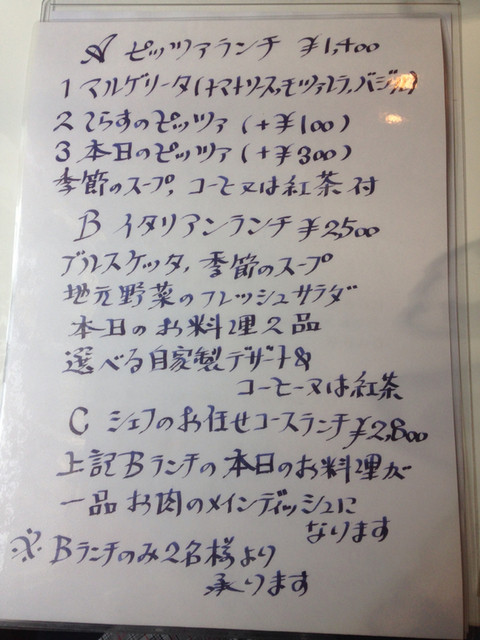 A ピッツァランチ ¥1,400
1 マルゲリータ(トマトソース,モッツァレラ,バジル)
2 てらすのピッツァ (+¥100)
3 本日のピッツァ (+¥300)
季節のスープ, コーヒー又は紅茶付
B イタリアンランチ ¥2,500
ブルスケッタ, 季節のスープ
地元野菜のフレッシュサラダ
本日のお料理2品
選べる自家製デザート&
コーヒー又は紅茶
C シェフのお任せコースランチ ¥2,800
上記Bランチの本日のお料理が
一品お肉のメインディッシュに
なります
※Bランチのみ2名様より
承ります